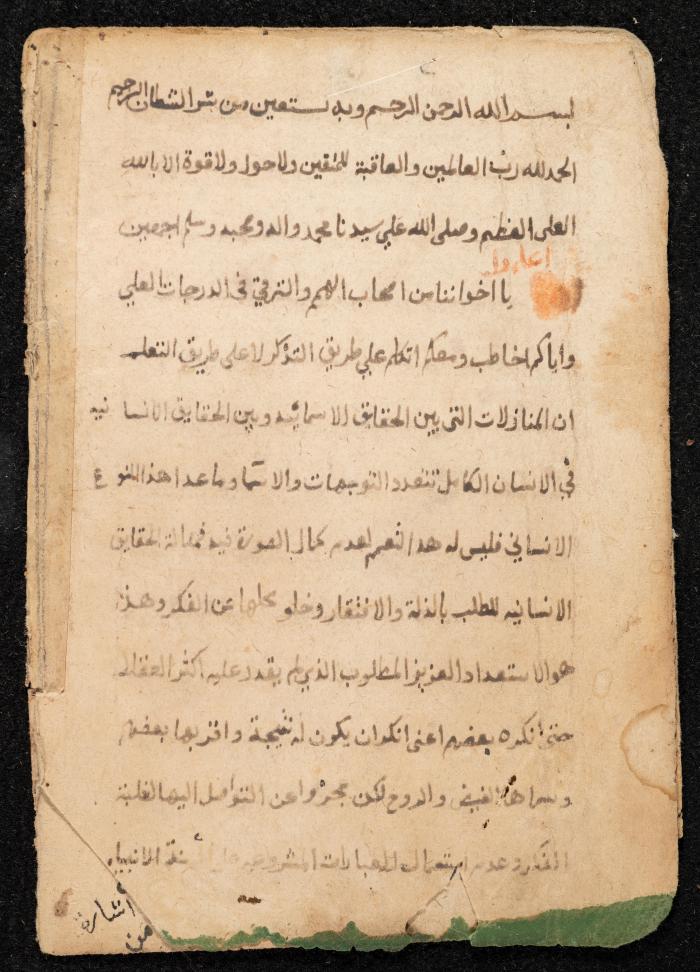 بسم الله الرحمن الرحيم وبه نستعين من شر الشطان الرجيم
الحمد لله رب العالمين والعاقبة للمتقين ولاحول ولاقوة الا بالله
العلى العظيم وصلى الله علي سيدنا محمد واله وصحبه وسلم اجمعين
اعلموا
يا اخواننا من اصحاب الهمم والترقي فى الدرجات العلي
واياكم اخاطب ومعكم اتكلم علي طريق التذكر لا على طريق التعلم
ان المنازلات التى بين الحقايق الاسمائيه وبين الحقايق الانسا نيه
في الانسان الكامل تتعدد التوجهات والاسما وما عدا هذا النوع
الانساني فليس له هذا التعميم لعدم كمال الصورة فيه الحقايق
الانسانيه للطلب بالذلة والافتقار وخلو محلها عن الفكر وهذا
هو الاستعداد العزيز المطلوب الذي لم يقدر عليه اكثر العقلا
حتى انكره بعضهم اعنى انكر ان يكون له نتيجة واقر بها بعضهم
وسماها الفيض والروح لكن عجزوا عن التواصل اليها لغلبة
الفكر وعدم استعمال العبارات المشروعه على السنة الانبياء
اشارة
من